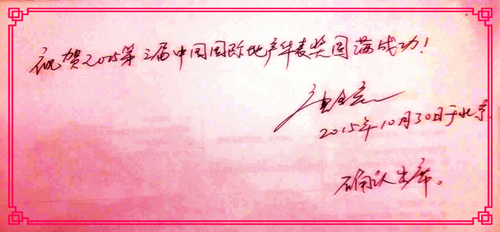 祝贺2015第三届中国国际地产华表奖圆满成功！
2015年10月30日于北京
确认出席。